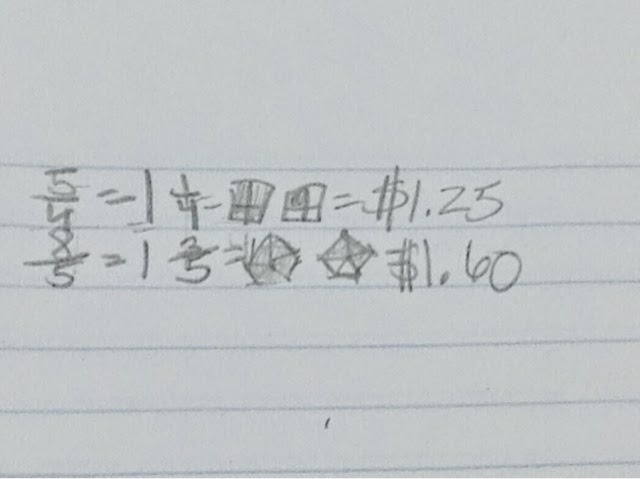 5/4 = 1 1/4 = = $1.25
8/5 = 1 3/5 = = $1.60